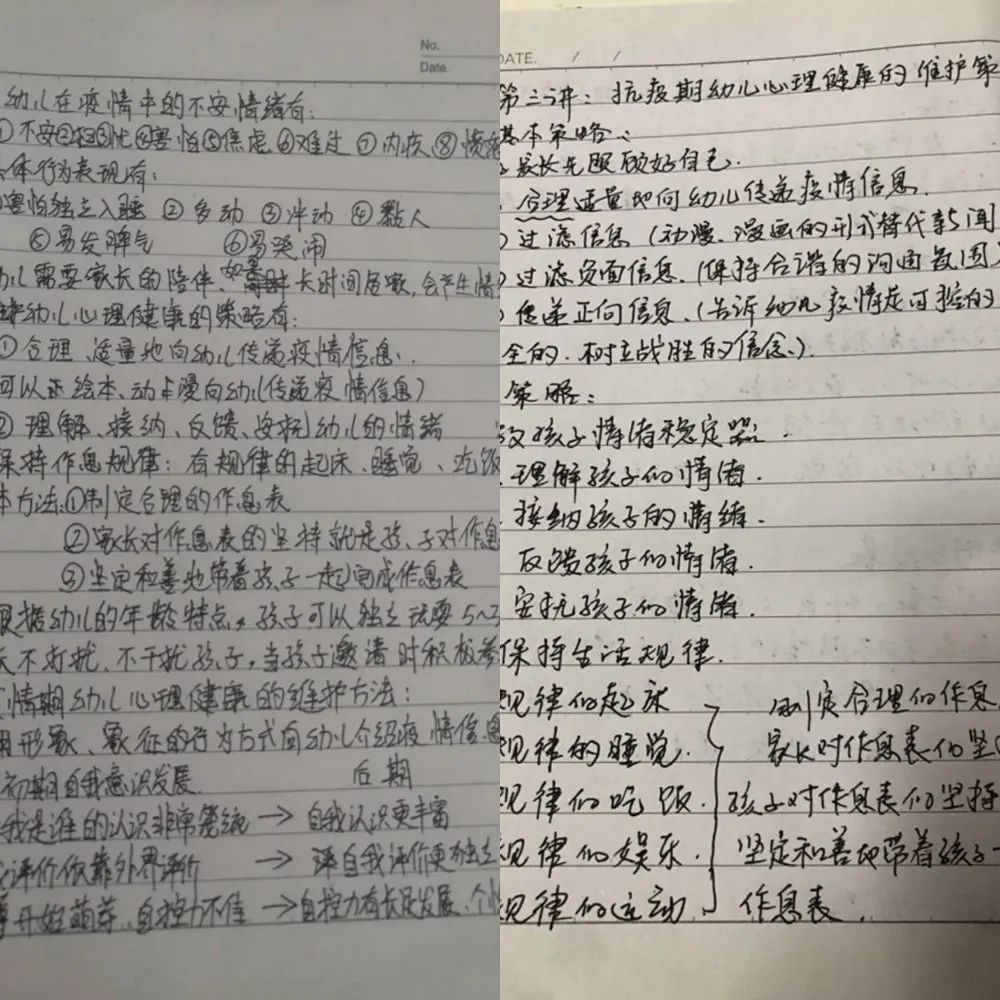 No.
Date.
幼儿在疫情中的不安情绪有:
①不安②担忧④害怕⑤焦虑⑥难过⑦内疚⑧愤
体行为表现有:
害怕独立入睡 ②多动 ③冲动 ④黏人
⑤易发脾气 ⑥易哭闹
儿需要家长的陪伴、如果长时间居家,会产生情
幼儿心理健康的策略有:
①合理、适量地向幼儿传递疫情信息.
可以正绘本、动漫向幼儿传递疫情信息)
②理解、接纳、反馈、安抚幼儿的情绪
保持作息规律:有规律的起床、睡觉、吃饭
本方法:①制定合理的作息表
②家长对作息表的坚持就是孩子对作息
③坚定和善地带着孩子一起完成作息表
根据幼儿的年龄特点,孩子可以独立玩耍5~
不打扰、不干扰孩子,当孩子邀请时积极参
情期幼儿心理健康的维护方法:
用形象、象征的行为方式向幼儿介绍疫情信息
初期自我意识发展. 后期
我是谁的认识非常笼统→自我认识更丰富
评价依靠外界评价→评自我评价更独立
开始萌芽、自控力不佳→自控力有长足发展、个
DATE. / /
第三讲:抗疫期幼儿心理健康的维护策
基本策略:
家长先照顾好自己.
合理适量地向幼儿传递疫情信息.
过滤信息(动漫、漫画的形式替代新闻
过滤负面信息.(保持合谐的沟通氛围
传递正向信息.(告诉幼儿疫情是可控的
全的.树立战胜的信念.).
策略:
孩子情绪稳定器.
理解孩子的情绪.
接纳孩子的情绪.
反馈孩子的情绪.
安抚孩子的情绪.
保持生活规律.
规律的起床 制定合理的作息
规律的睡觉. 家长对作息表的坚
规律的吃饭. 孩子对作息表的坚持
规律的娱乐. 坚定和善地带着孩子一
规律的运动. 作息表.